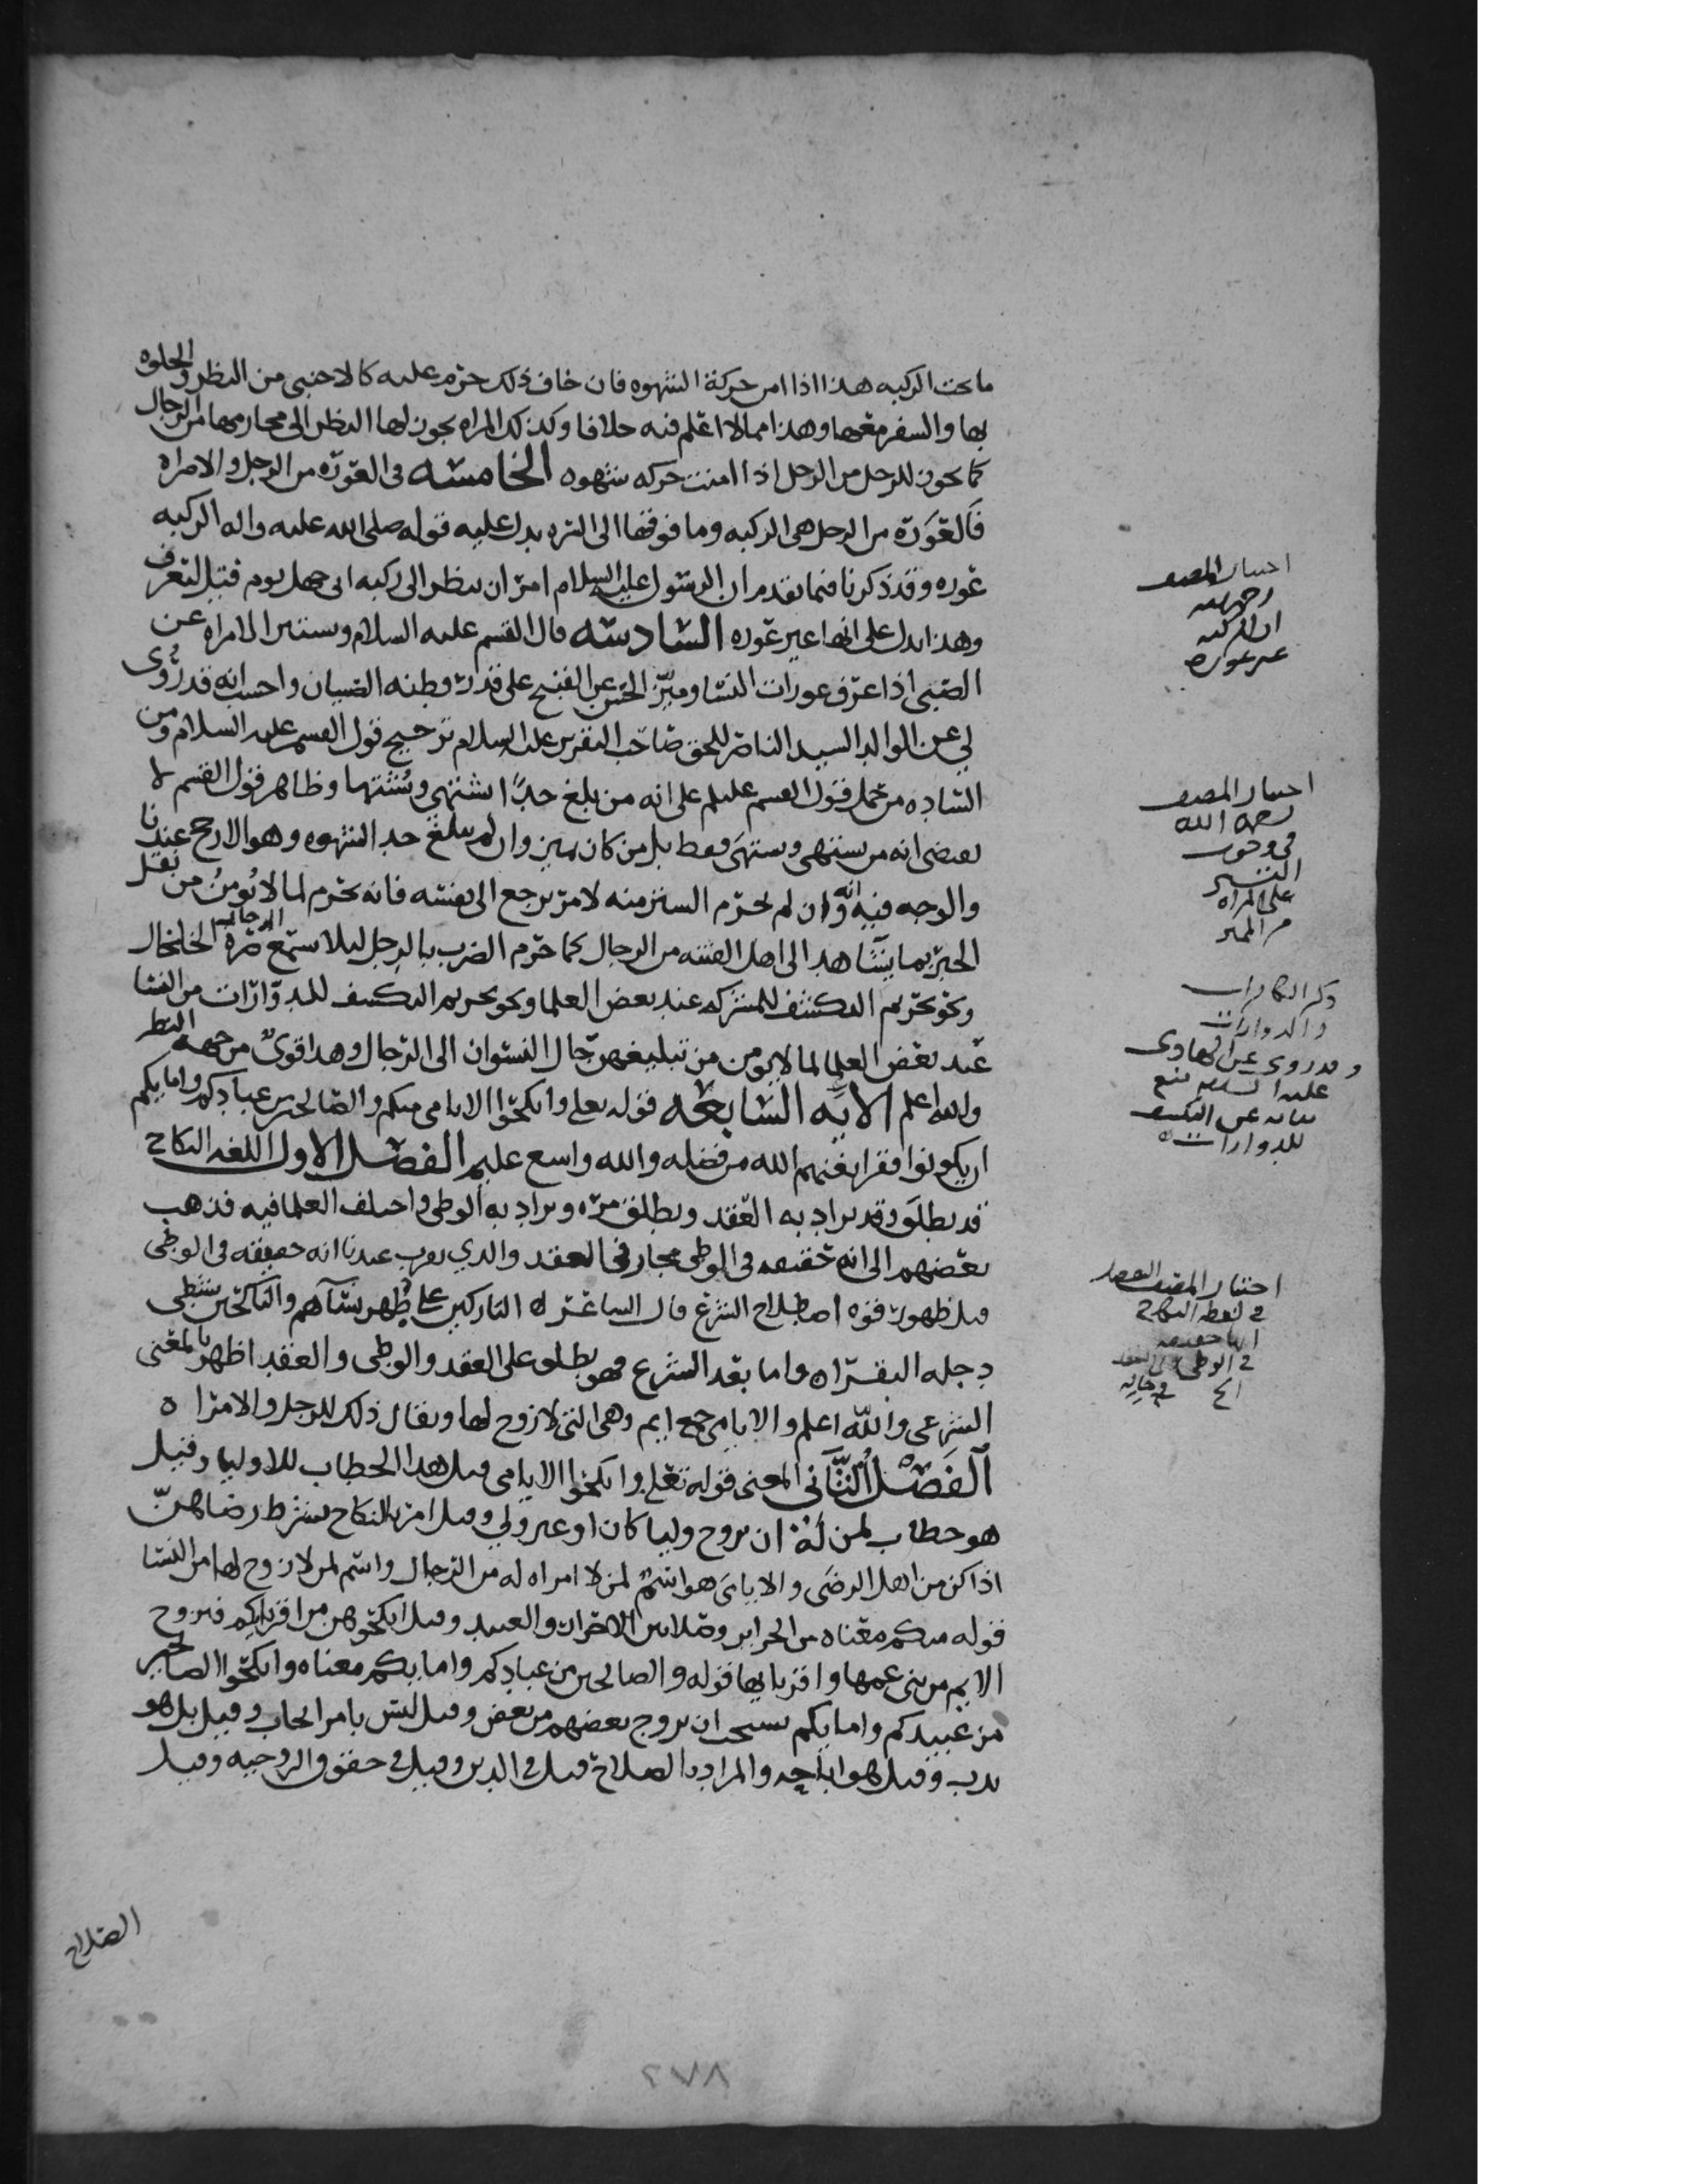 ما تحت الركبه هذا اذا امن حركة الشهوه فان خاف ذلك حرم عليه كالاجنبي من النظر والخلوه
بها والسفر معها وهذا مما لا اعلم فيه خلافا وكذلك المراه يجوز لها النظر الى محارمها من الرجال
كما يجوز للرجل من الرجل اذا امنت حركه شهوه الخامسه في العوره من الرجل والامراه
فالعورة من الرجل هي الركبه وما فوقها الى السره يدل عليه قوله صلى الله عليه واله الركبه
عوره وقد ذكرنا فيما تقدم ان الرسول عليه السلام امر ان ينظر الى ركبه ابي جهل يوم قتل لتعرف
وهذا يدل على انها غير عوره السادسه قال القسم عليه السلام وتستتر الامراه عن
الصبي اذا عرف عورات النسا وميّز الحسن عن القبيح على قدر فطنه الصبيان واحسب انه قد رُوي
لي عن الوالد السيد الناصر للحق صاحب التقرير عليه السلام ترجيح قول القسم عليه السلام ومن
الساده من حمل قول القسم عليلم على انه من بلغ حدًا اشتهي ويُشتها وظاهر قول القسم لا
يقضي انه من يشتهي ويشتهى فقط بل من كان يميز وان لم يبلغ حد الشهوه وهو الارجح عندنا
والوجه فيه انه وان لم يحرم الستر منه لامر يرجع الى نفسه فانه يحرم لما لا يُومن من نقل
الخبر بما يشاهد الى اهل الفتنه من الرجال كما حرم الضرب بالرجل ليلا يستمع الرجال صره الخلخال
ونحو تحريم التكشف للمشركه عند بعض العلما ونحو تحريم التكشف للدوّارات من النسا
عند بعض العلما لما لا يومن من تبليغهن حال النسوان الى الرجال وهذا قوي من جهه النظر
والله اعلم الايه السابعه قوله تعلى وانكحوا الايامى منكم والصالحين من عبادكم وامايكم
ان يكونوا فقرا يغنهم الله من فضله والله واسع عليم الفصل الاول اللغه النكاح
قد يطلق وقد يراد به العقد ويطلق مره ويراد به الوطي واختلف العلما فيه فذهب
بعضهم الى انه حقيقه في الوطي مجاز في العقد والذي يقرب عندنا انه حقيقه في الوطي
قبل ظهور قوه اصطلاح الشرع قال الشاعر ه التاركين على ظهر نسآهم والناكحين بشطي
دجله البقرا ه واما بعد الشرع فهو يطلق على العقد والوطي والعقد اظهر بالمعنى
الشرعي والله اعلم والايامى جمع ايم وهي التي لا زوج لها ويقال ذلك للرجل والامراه
الفصل الثاني المعنى قوله تعلى وانكحوا الايامى قيل هذا الخطاب للاوليا وقيل
هو خطاب لمن له ان يزوج وليا كان او غير ولي وقيل امر بالنكاح بشرط رضاهن
اذا كن من اهل الرضى والايامى هو اسم لمن لا امراه له من الرجال واسم لمن لا زوج لها من النسا
قوله منكم معناه من الحراير وقيل من الاحرار والعبيد وقيل انكحوهن من اقربايكم فتزوج
الايم من بني عمها واقربايها قوله والصالحين من عبادكم وامايكم معناه وانكحوا الصالحين
من عبيدكم وامايكم يستحب ان يزوج بعضهم من بعض وقيل ليس بامر ايجاب وقيل بل هو
ندب وقيل هو اباحه والمراد بالصلاح قيل في الدين وقيل في حقوق الزوجيه وقيل
الصلاح
احتيار المصنف
رحمه الله
ان الركبه
غير عوره
احتيار المصنف
رحمه الله
في وجوب
التستر
على المراه
من المميز
ذكر الكافرات
والدوارات
وقد روي عن الهادي
عليه السلم منع
نسايه عن التكشف
للدوارات
اختيار المصنف
في لفظه النكاح
انها حقيقه
في الوطي
٢٧٨